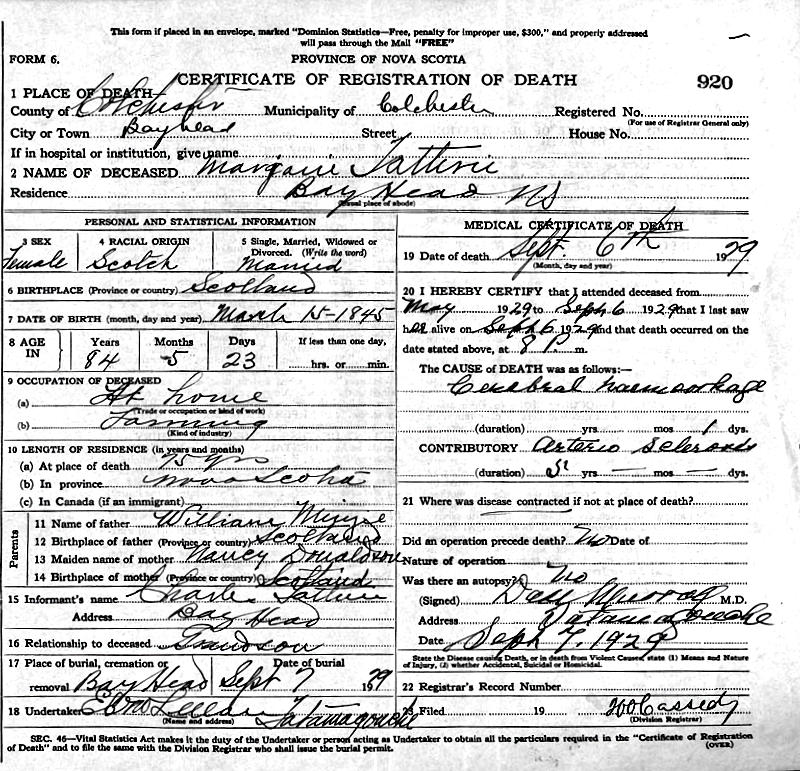 This form if placed in an envelope, marked "Dominion Statistics—Free, penalty for improper use, $300," and properly addressed
will pass through the Mail "FREE"
FORM 6.
PROVINCE OF NOVA SCOTIA
CERTIFICATE OF REGISTRATION OF DEATH
920
1 PLACE OF DEATH
County of Colchester Municipality of Colchester Registered No.
(For use of Registrar General only)
City or Town Bayhead Street House No.
If in hospital or institution, give name
2 NAME OF DECEASED Margarie Tattrie
Residence Bay Head NS
(Usual place of abode)
PERSONAL AND STATISTICAL INFORMATION
3 SEX 4 RACIAL ORIGIN 5 Single, Married, Widowed or Divorced. (Write the word)
Female Scotch Married
6 BIRTHPLACE (Province or country) Scotland
7 DATE OF BIRTH (month, day and year) March 15-1845
8 AGE IN Years Months Days If less than one day,
84 5 23 hrs. or min.
9 OCCUPATION OF DECEASED
(a) At home
(Trade or occupation or kind of work)
(b) Farming
(Kind of industry)
10 LENGTH OF RESIDENCE (in years and months)
(a) At place of death 75 yrs
(b) In province Nova Scotia
(c) In Canada (if an immigrant)
Parents
11 Name of father William
12 Birthplace of father (Province or country) Scotland
13 Maiden name of mother Nancy Donaldson
14 Birthplace of mother (Province or country) Scotland
15 Informant's name Charles Tattrie
Address Bay Head
16 Relationship to deceased Grandson
17 Place of burial, cremation or removal Bay Head Date of burial Sept 7 1929
18 Undertaker Tatamagouche
(Name and address)
MEDICAL CERTIFICATE OF DEATH
19 Date of death Sept. 6th 1929
(Month, day and year)
20 I HEREBY CERTIFY that I attended deceased from
May 1929 to Sept 6 1929 that I last saw
her alive on Sept 6 1929 and that death occurred on
date stated above, at 8 P. m.
The CAUSE of DEATH was as follows:—
Cerebral haemorrhage
(duration) yrs mos 1 dys.
CONTRIBUTORY Arterio Sclerosis
(duration) 5 yrs — mos — dys.
21 Where was disease contracted if not at place of death?
Did an operation precede death? No Date of
Nature of operation
Was there an autopsy? No
(Signed) Dan Murray M.D.
Address Tatamagouche
Date Sept 7, 1929
State the Disease causing Death, or in death from Violent Causes, state (1) Means and Nature
of Injury, (2) whether Accidental, Suicidal or Homicidal.
22 Registrar's Record Number
23 Filed 19 Cassedy
(Division Registrar)
SEC. 46—Vital Statistics Act makes it the duty of the Undertaker or person acting as Undertaker to obtain all the particulars required in the "Certificate of Registration
of Death" and to file the same with the Division Registrar who shall issue the burial permit.
(OVER)